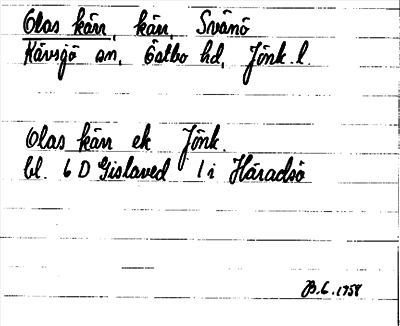 Olas kärr, kärr, Svänö
Kävsjö sn, Östbo hd, Jönk. l.
Olas kärr ek Jönk.
bl. 6 D Gislaved 1 i Häradsö
B.G. 1958